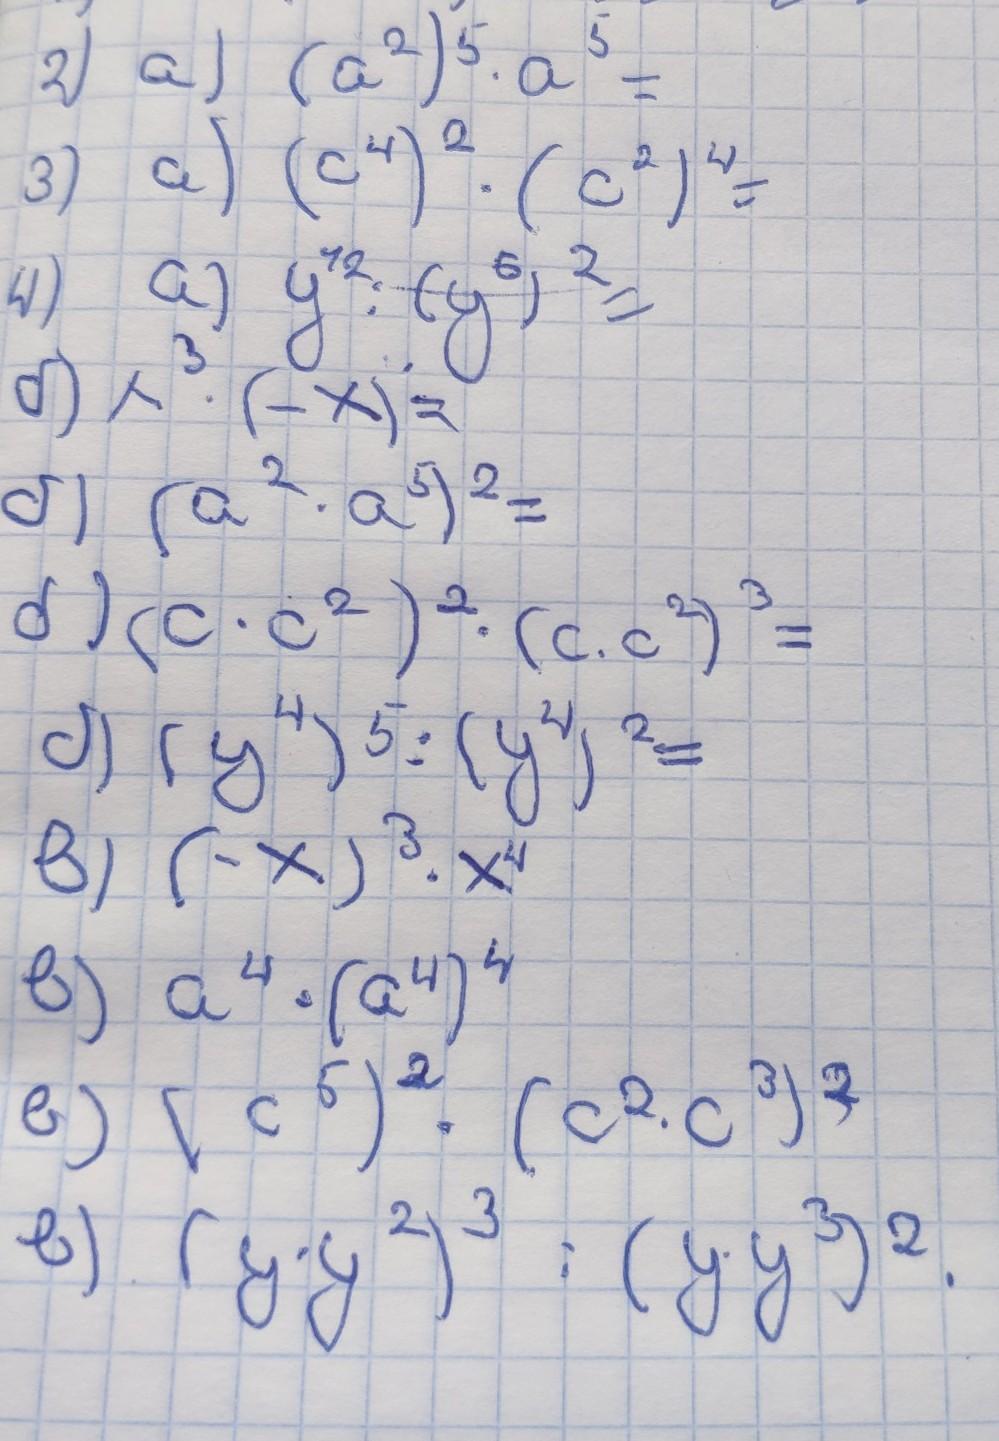 2) а) (a²)⁵ · a⁵ =
3) а) (c⁴)² · (c²)⁴ =
4) а) y¹² : (y⁶)² =
б) x³ · (-x) =
б) (a² · a⁵)² =
б) (c · c²)² · (c · c²)³ =
б) (y⁴)⁵ : (y⁴)² =
в) (-x)³ · x⁴
в) a⁴ · (a⁴)⁴
в) (c⁵)² · (c² · c³)²
в) (y · y²)³ : (y · y³)².